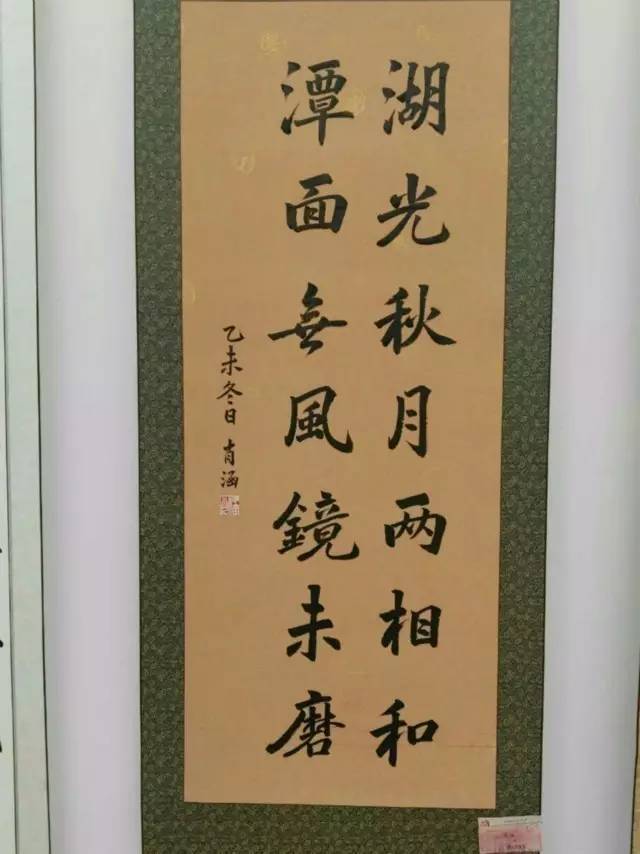 湖光秋月两相和
潭面無風鏡未磨
乙未冬日 肖涵